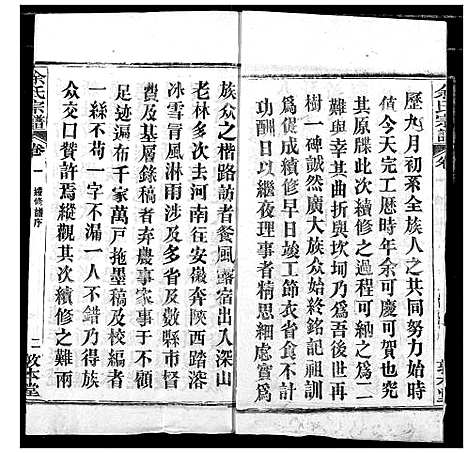 余氏宗譜
卷
歷九月初系全族人之共同努力始時
值今天完工歷時年余可慶可賀也當
其原牒此次續修之過程可納之為二
難與幸其曲折與坎坷乃為吾後世再
樹一碑誠然廣大族眾始終銘記祖訓
為促成續修早日竣工節衣省食不計
功酬日以繼夜理事者精思細慮實為
敦本堂
族众之楷路訪者餐風露宿出入深山
老林多次去河南往安徽奔陝西踏溶
冰雪冒風淋雨涉及多省及数縣市督
費及基層錄稿者弃農事家事于不顧
足迹遍布千家萬戶拖墨稿及校編者
一絲不苟一字不漏一人不錯乃得族
众众口贊許焉縱觀其次續修之難兩
余氏宗譜
卷一
續修譜序
二
敦本堂